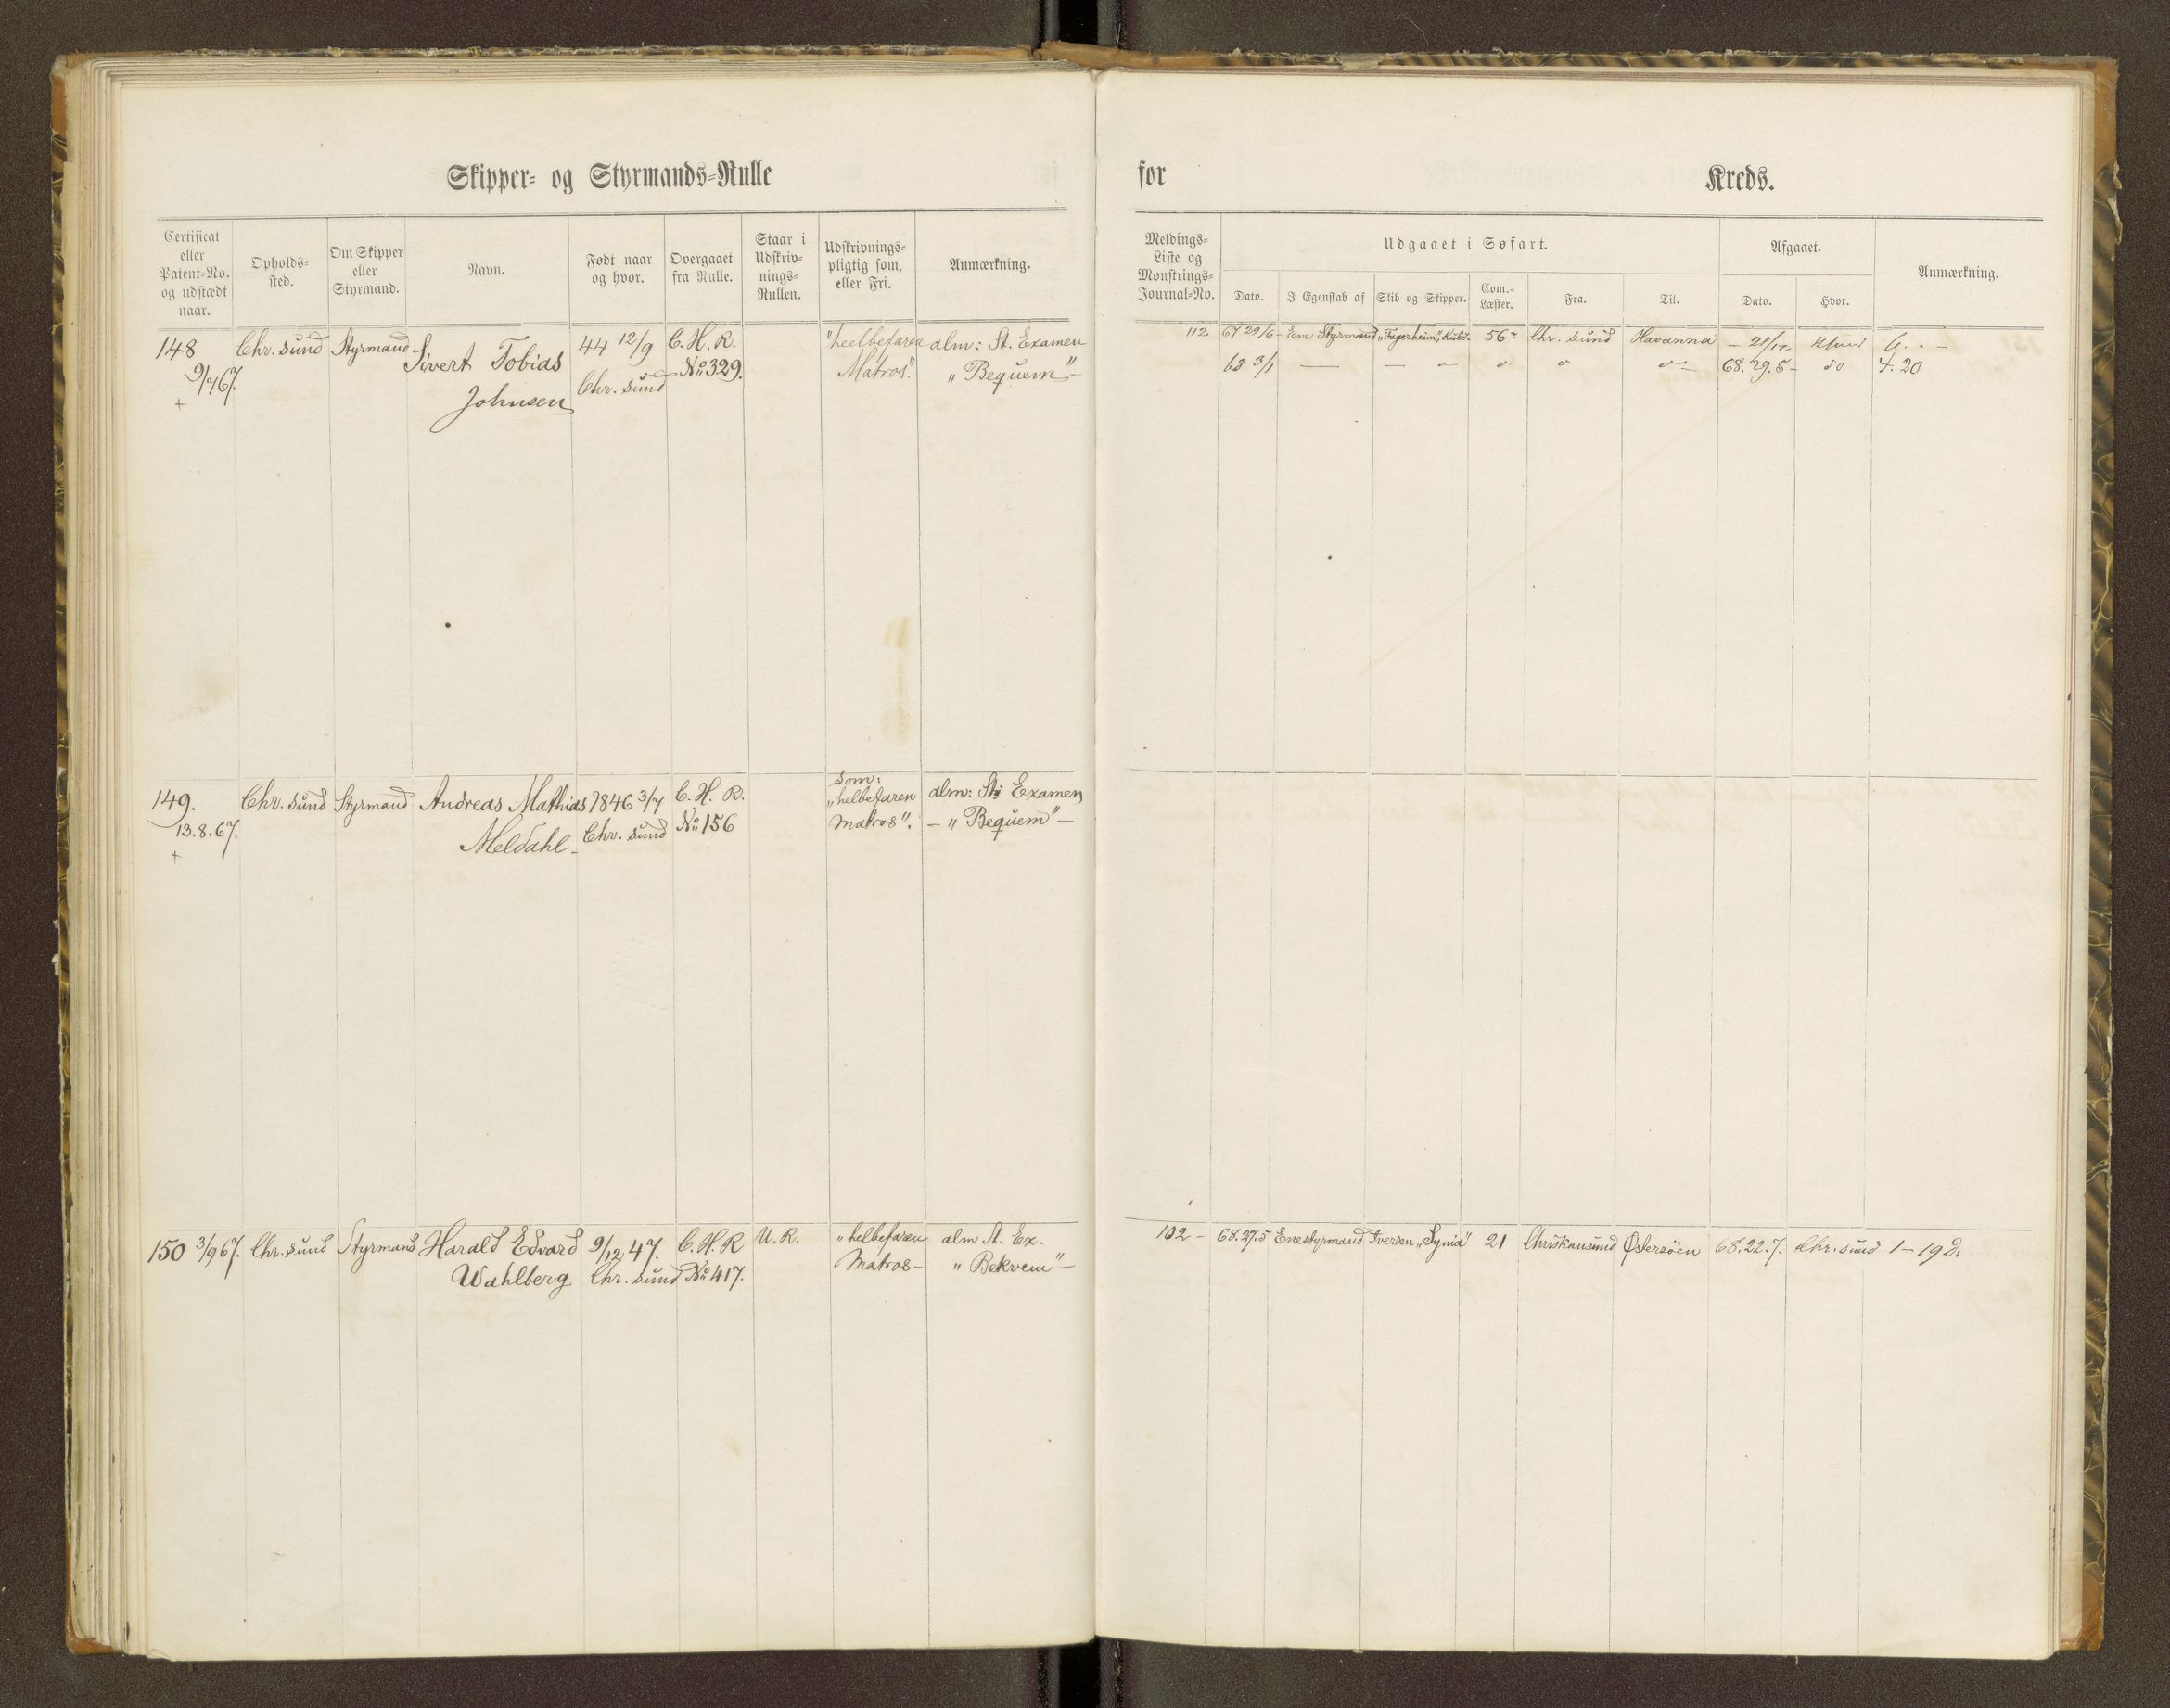 Skipper- og Styrmands-Rulle
for Kreds.
Certificat eller Patent-No. og udstædt naar.
Opholds-sted.
Om Skipper eller Styrmand.
Navn.
Født naar og hvor.
Overgaaet fra Rulle.
Staar i Udskriv-nings-Rullen.
Udskrivnings-pligtig som, eller Fri.
Anmærkning.
Meldings-Liste og Mønstrings-Journal-No.
Udgaaet i Søfart.
Dato.
I Egenskab af
Skib og Skipper.
Com.-Læster.
Fra.
Til.
Afgaaet.
Dato.
Hvor.
Anmærkning.
148 Chr. sund Styrmand Sivert Tobias 44 12/9 C. H. R. "heelbefaren alm: St. Examen
9/7 67. Johnsen Chr. sund No 329. Matros". "Bequem"-
+
112 67 29/6- Ene Styrmand "Fagerheim", 56 Chr. sund Havanna - 21/12
68 3/1 — — 68. 29. 5- do 4. 20
149. Chr. sund Styrmand Andreas Mathias 1846 3/7 C. H. R. som: "helbefaren alm: St: Examen
13.8.67. Meldahl- Chr. sund No 156 Matros". - "Bequem"-
+
150 3/9 67. Chr. sund Styrmand Harald Edvard 9/12 47. C. H. R U. R. "helbefaren alm St. Ex.
Wahlberg Chr. sund No 417. Matros- "Bekvem"-
102 - 68.27.5 Enestyrmand Iversen "Synid" 21 Christiansund Østersöen 68.22.7. Chr. sund 1-19 d.